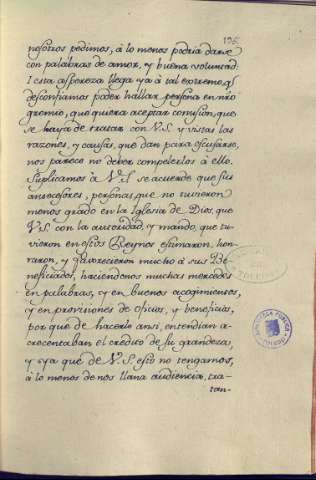 195
nosotros pedimos, á lo menos podria darse
con palabras de amor, y buena voluntad:
I esta asspereza llega ya á tal extremo, q̃
desconfiamos poder hallar persona en nr̃o
gremio, que quiera aceptar comision, que
se haya de tratar con V.S. y vistas las
razones, y causas, que dan para escusarse,
nos parece no deber compelerlos á ello.
Suplicamos á V.S. se acuerde que sus
antecesores, personas, que no tuvieron
menos grado en la Iglesia de Dios, que
V.S. con la autoridad, y mando, que tu-
vieron en estos Reynos estimaron, hon-
raron, y favorecieron mucho á sus Be-
neficiados, haciendonos muchas mercedes
en palabras, y en buenos acogimientos,
y en provisiones de oficios, y beneficios,
por que de hacerlo ansi, entendian a-
crecentaban el credito de su grandeza,
y ya que de V.S. esto no tengamos,
á lo menos de nos llana audiencia, tra-
tan-
BIBLIOTECA PUBLICA
TOLEDO